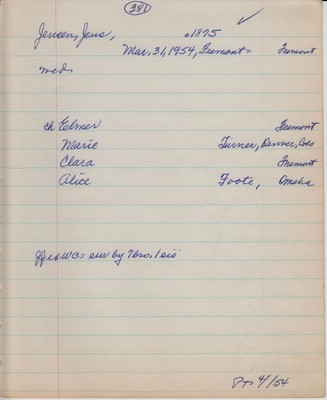 381
Jensen, Jens, c1875
Mar. 31, 1954, Fremont = Fremont
ch Elmer Fremont
Marie Turner, Denver, Colo
Clara Fremont
Alice Foote, Omaha
= sur by 7bro, 1 sis
4/1/54